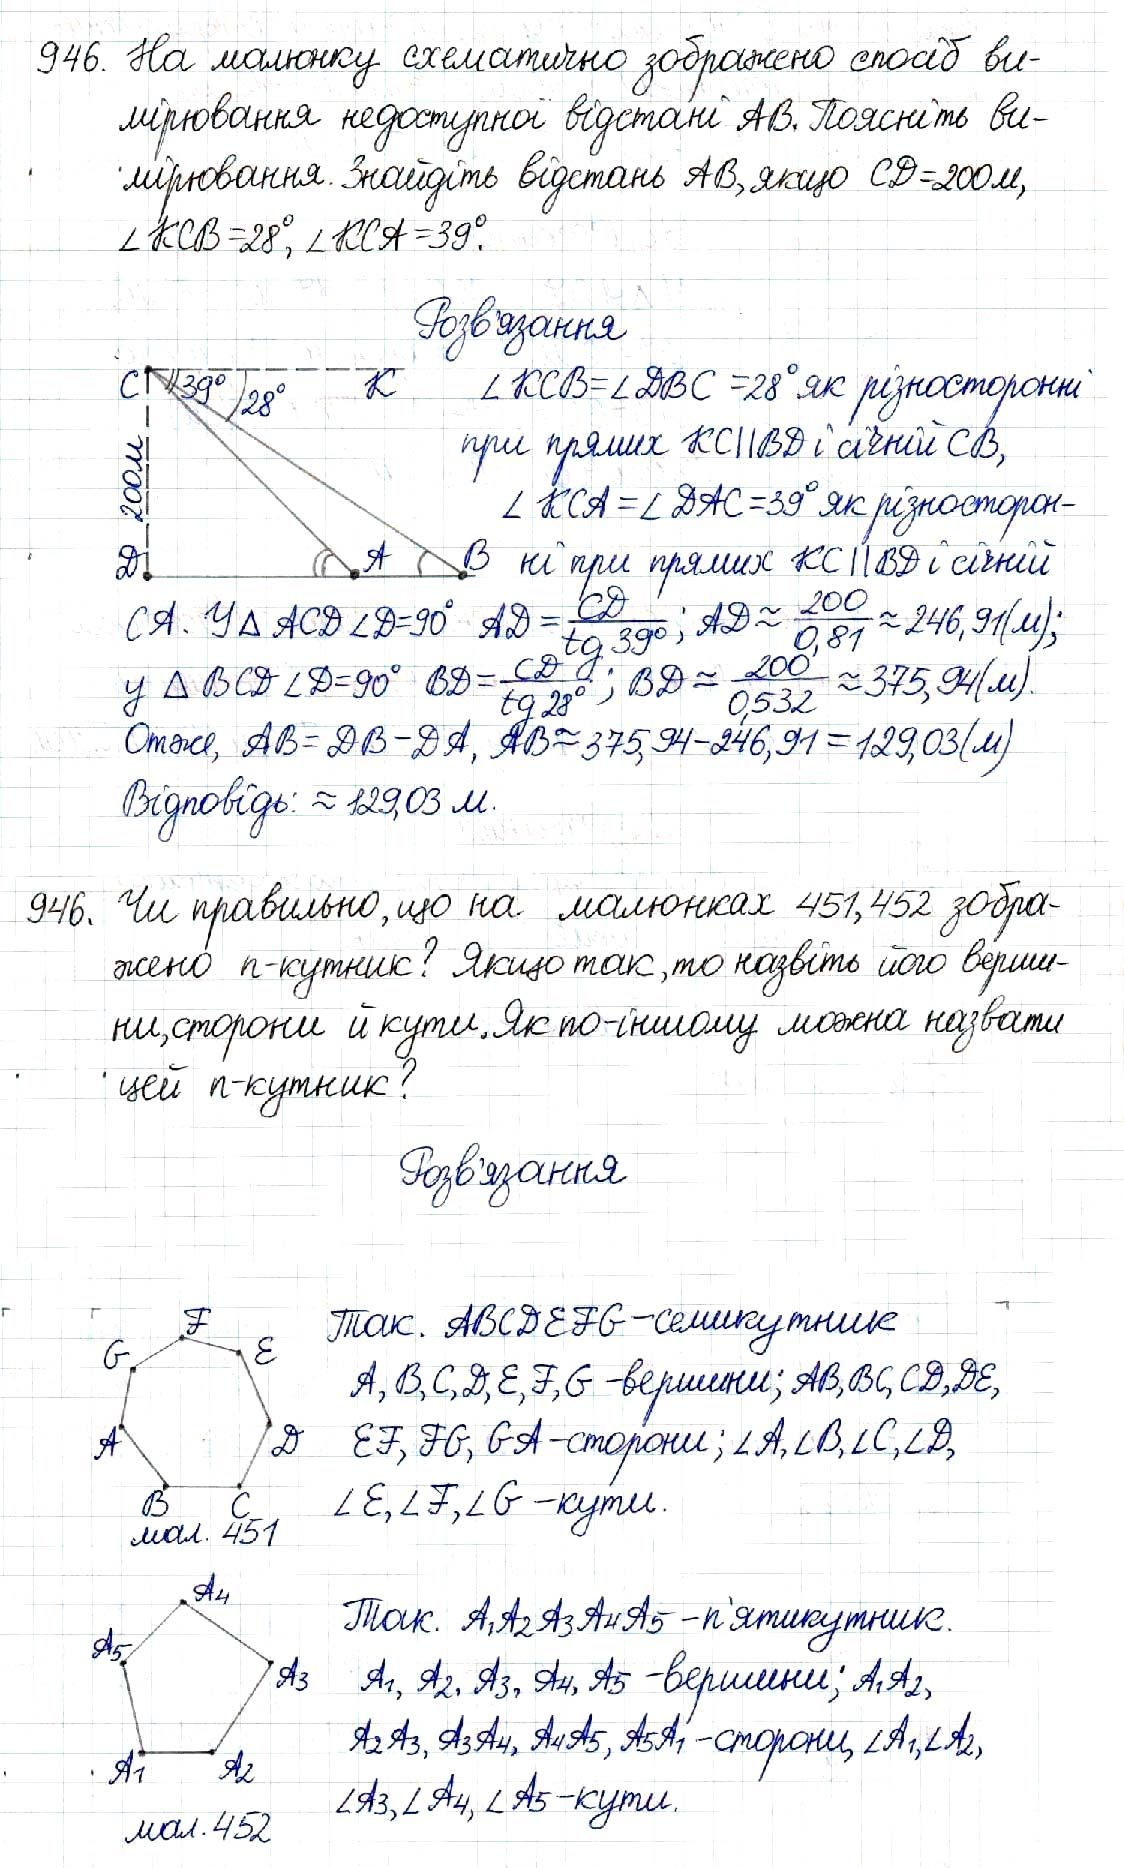 946. На малюнку схематично зображено спосіб ви-
мірювання недоступної відстані AB. Поясніть ви-
мірювання. Знайдіть відстань AB, якщо CD=200м,
∠KCB=28°, ∠KCA=39°.
Розв'язання
C 39° 28° K
200м
D A B
∠KCB=∠DBC=28° як різносторонні
при прямих KC||BD і січній CB,
∠KCA=∠DAC=39° як різносторон-
ні при прямих KC||BD і січній
CA. У △ACD ∠D=90° AD=CD/tg 39°; AD≈200/0,81≈246,91(м);
у △BCD ∠D=90° BD=CD/tg 28°; BD≈200/0,532≈375,94(м).
Отже, AB=DB-DA, AB≈375,94-246,91=129,03(м)
Відповідь: ≈129,03 м.
946. Чи правильно, що на малюнках 451, 452 зобра-
жено n-кутник? Якщо так, то назвіть його верши-
ни, сторони й кути. Як по-іншому можна назвати
цей n-кутник?
Розв'язання
F
G E
A D
B C
мал. 451
Так. ABCDEFG-семикутник
A, B, C, D, E, F, G -вершини; AB, BC, CD, DE,
EF, FG, GA-сторони; ∠A, ∠B, ∠C, ∠D,
∠E, ∠F, ∠G -кути.
A4
A5
A3
A1 A2
мал. 452
Так. A1A2A3A4A5 -п'ятикутник.
A1, A2, A3, A4, A5 -вершини; A1A2,
A2A3, A3A4, A4A5, A5A1 -сторони, ∠A1, ∠A2,
∠A3, ∠A4, ∠A5 -кути.